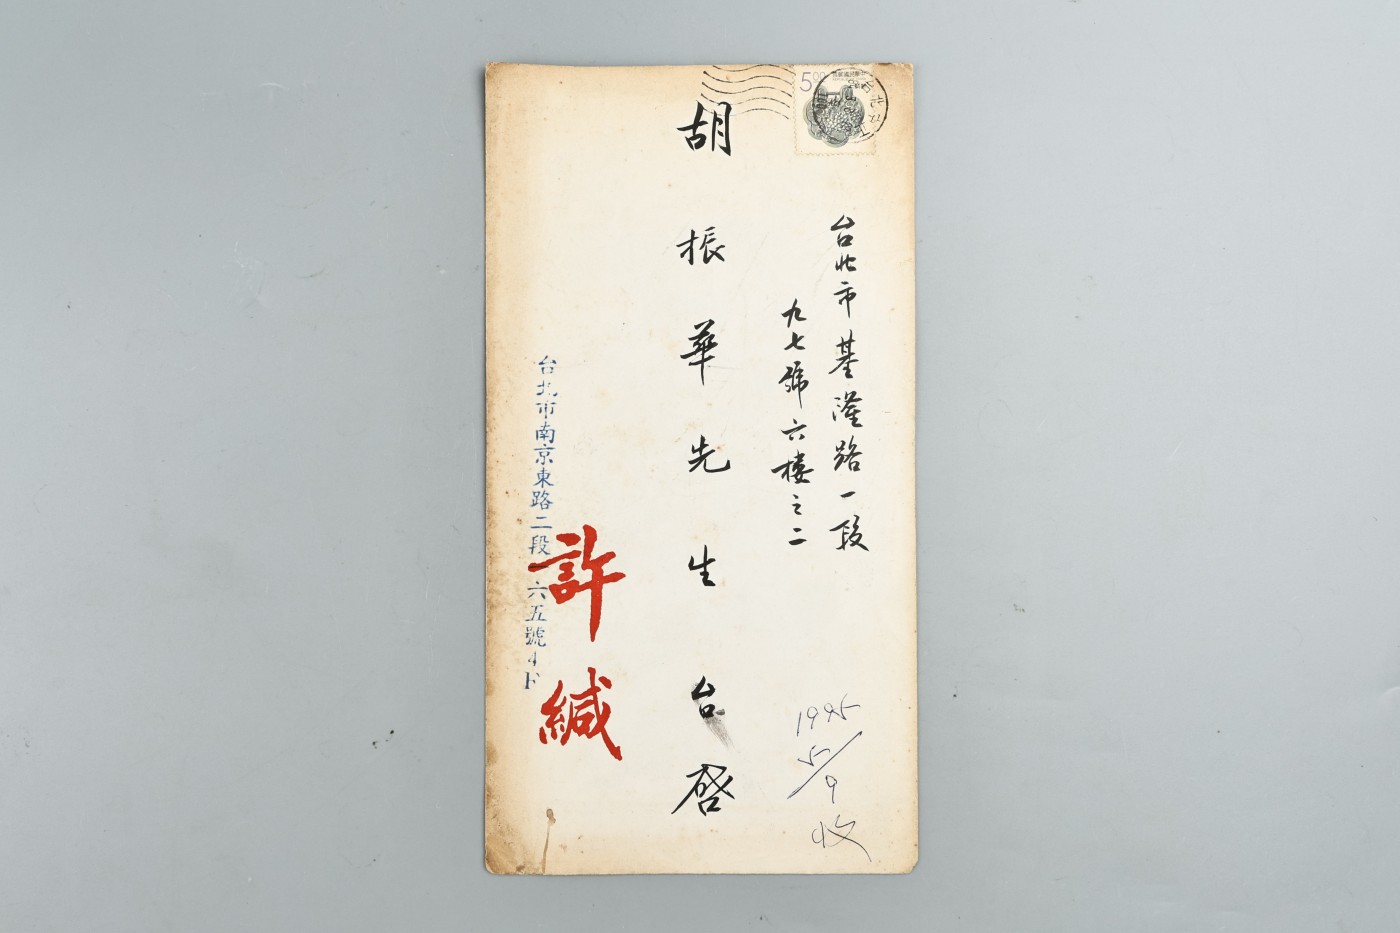 5.00
中華民國郵票
台北市基隆路一段
九七號六樓之二
胡振華先生台啓
許緘
台北市南京東路二段一六五號4F
1995
5/9
收